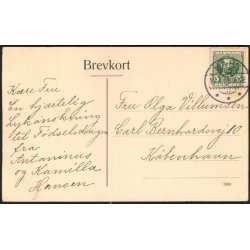 Brevkort
Kære Fru
En hjærtelig
Lykønskning
til Fødselsdagen
fra
Antaninus
og Kamilla
Hansen
Fru Olga Villumsen
Carl Bernhardsvej 10
København